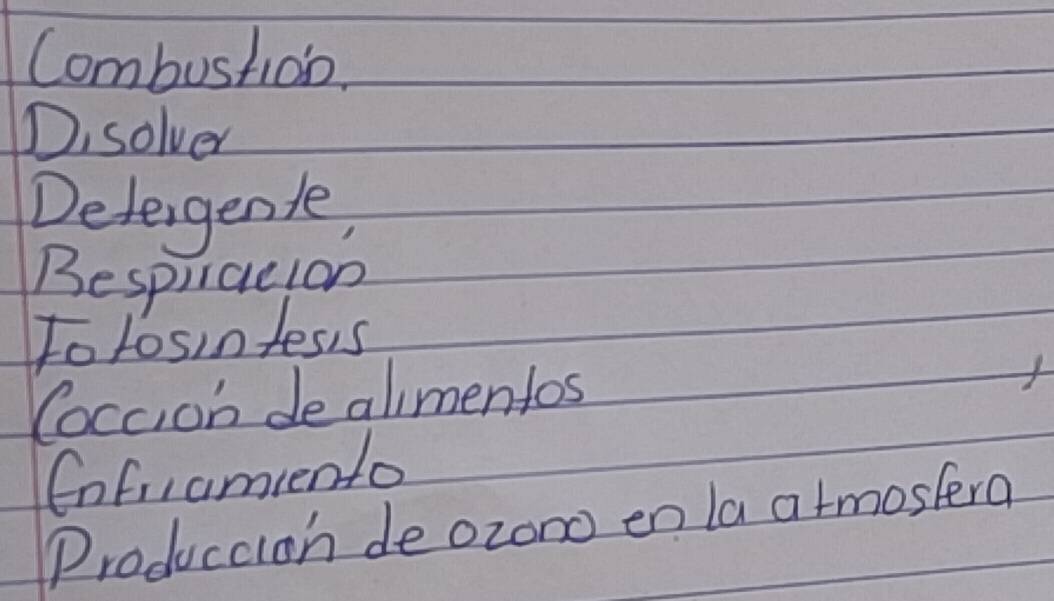 Combustión.
Disolver
Detergente
Respiración
Fotosintesis
Cocción de alimentos
Enfriamiento
Producción de ozono en la atmosfera